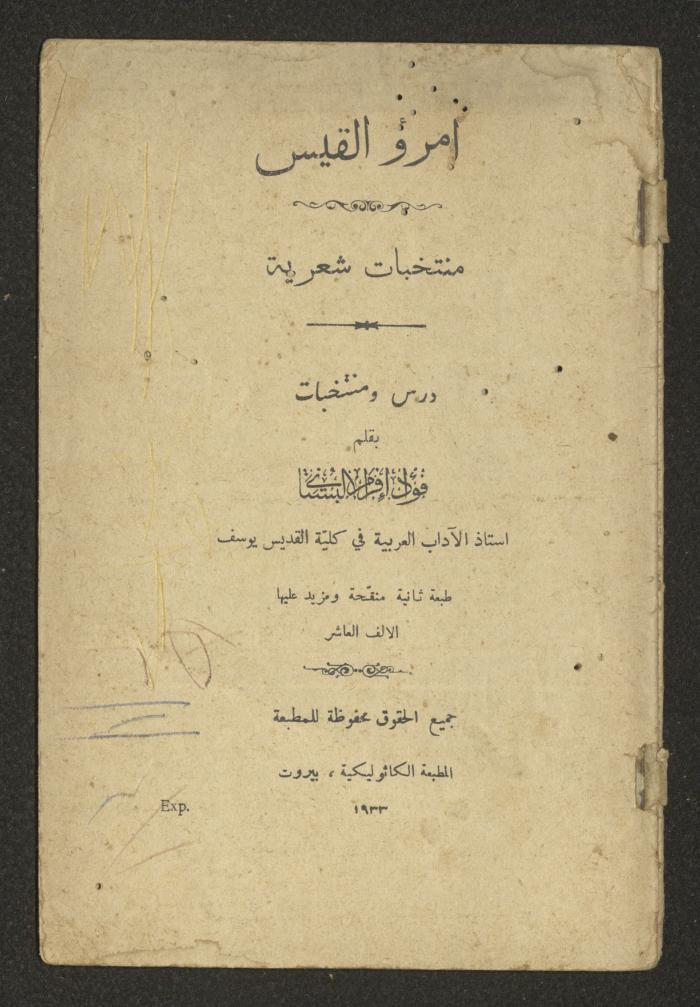 امرؤ القيس
منتخبات شعرية
درس ومنتخبات
بقلم
فؤاد إفرام البستاني
استاذ الآداب العربية في كليّة القديس يوسف
طبعة ثانية منقّحة ومزيد عليها
الالف العاشر
جميع الحقوق محفوظة للمطبعة
المطبعة الكاثوليكية ، بيروت
١٩٣٣
Exp.